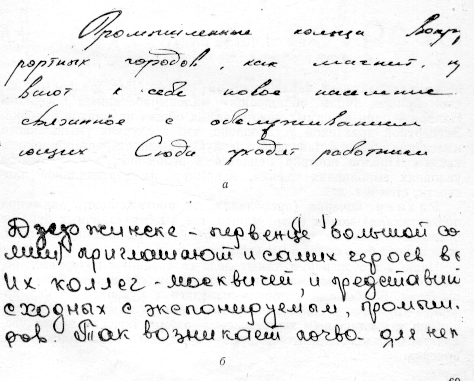 Промышленные кольца вокр
рортных городов, как магнит, п
вают к себе новое население
связанное с обслуживанием
ющих Сюда уходят работники
а
Дзержинске - первенце большой
приглашают и самих героев
их коллег - москвичей, и представит
сходных с экспонируемым, промыш
ров. Так возникает почва для
б